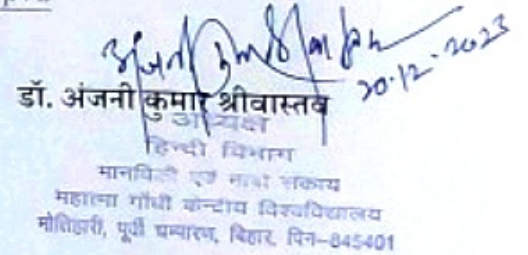 20.12.2023
डॉ. अंजनी कुमार श्रीवास्तव
अध्यक्ष
हिन्दी विभाग
मानविकी एवं भाषा संकाय
महात्मा गाँधी केन्द्रीय विश्वविद्यालय
मोतिहारी, पूर्वी चम्पारण, बिहार, पिन-845401